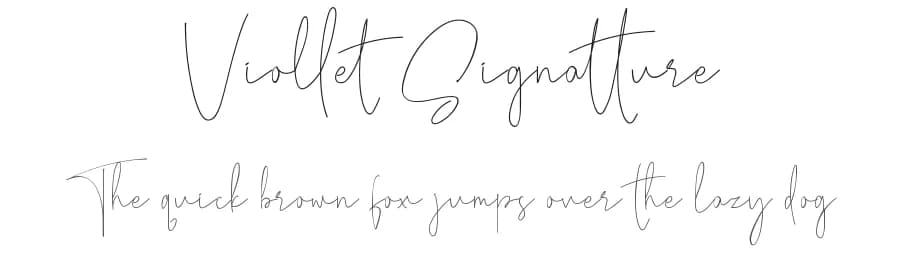 Viollet Signatture
The quick brown fox jumps over the lazy dog